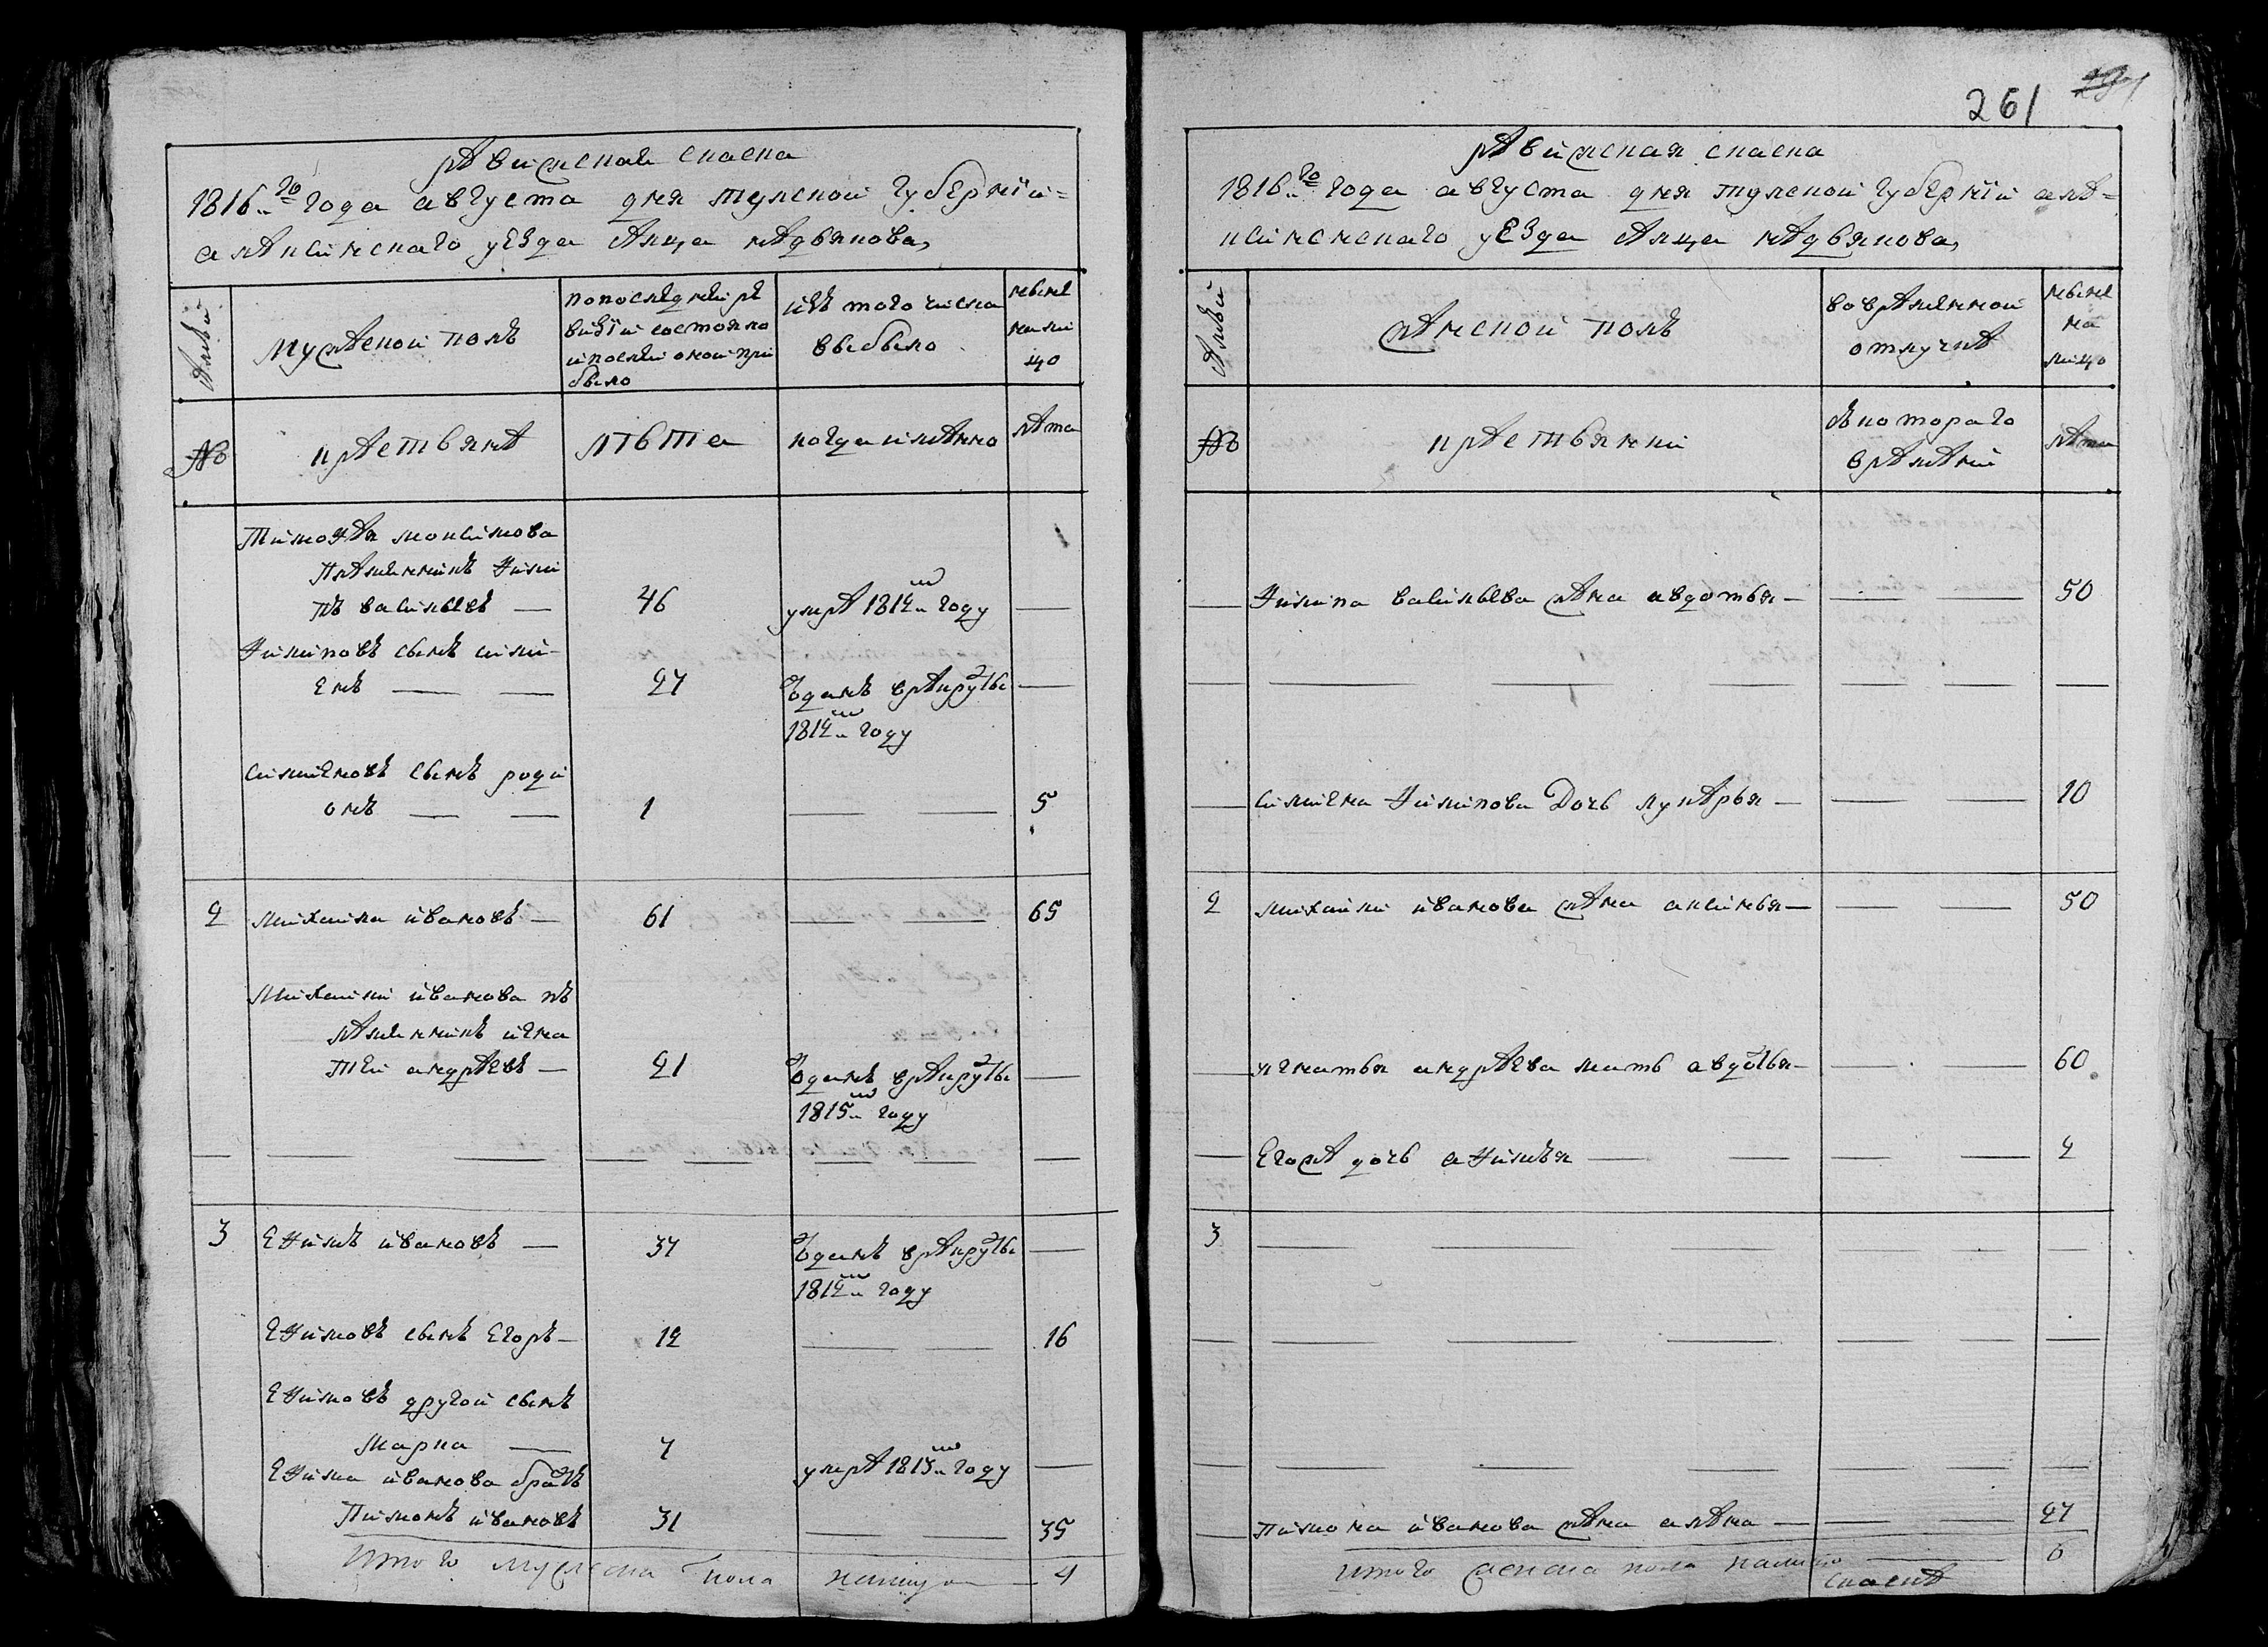 261
ревижская скаска
1816го года августа дня тулской губернїи
алексинскаго уезда селца медвянова
семьи
мужеской полъ
попоследней ре
визїи состояло
ипосле оной при
было
изъ того числа
выбыло
ныне
на ли
цо
№
крестьяне
лѣта
когда имянно
лета
Тимофея максимова
племянникъ Фили
пъ васильевъ —
46
умре 1812м году
—
Филиповъ сынъ сими
енъ — —
27
Отданъ врекруты
1812м году
—
симионовъ сынъ роди
онъ — —
1
— —
5
2
михаила ивановъ —
61
— —
65
Михаили иванова пъ
лемянникъ игна
тей андреевъ —
21
Отданъ врекруты
1815м году
—
3
Ефимъ ивановъ —
37
Отданъ врекруты
1812м году
—
Ефимовъ сынъ Егоръ —
12
— —
16
Ефимовъ другой сынъ
Марка —
7
умре 1813м году
—
Ефима иванова братъ
Пимонъ ивановъ
31
—
35
Итого мужеска пола налицо — 4
ревижская скаска
1816го года августа дня тулской губернїи але=
ксинскаго уезда селца медвянова
семьи
женской полъ
во временной
отлучке
ныне
на
лицо
№
крестьянки
скотораго
времени
лета
— Филипа васильева жена авдотья — — —
50
— симиона Филипова Дочь лукерья — — —
10
2
михаили иванова жена аксинья — — —
50
— игнатья андреева мать авдотья — — —
60
— Егоже дочь афимья — — — —
9
3
— пимона иванова жена алена — — —
27
итого женска пола налицо —
6
скаске